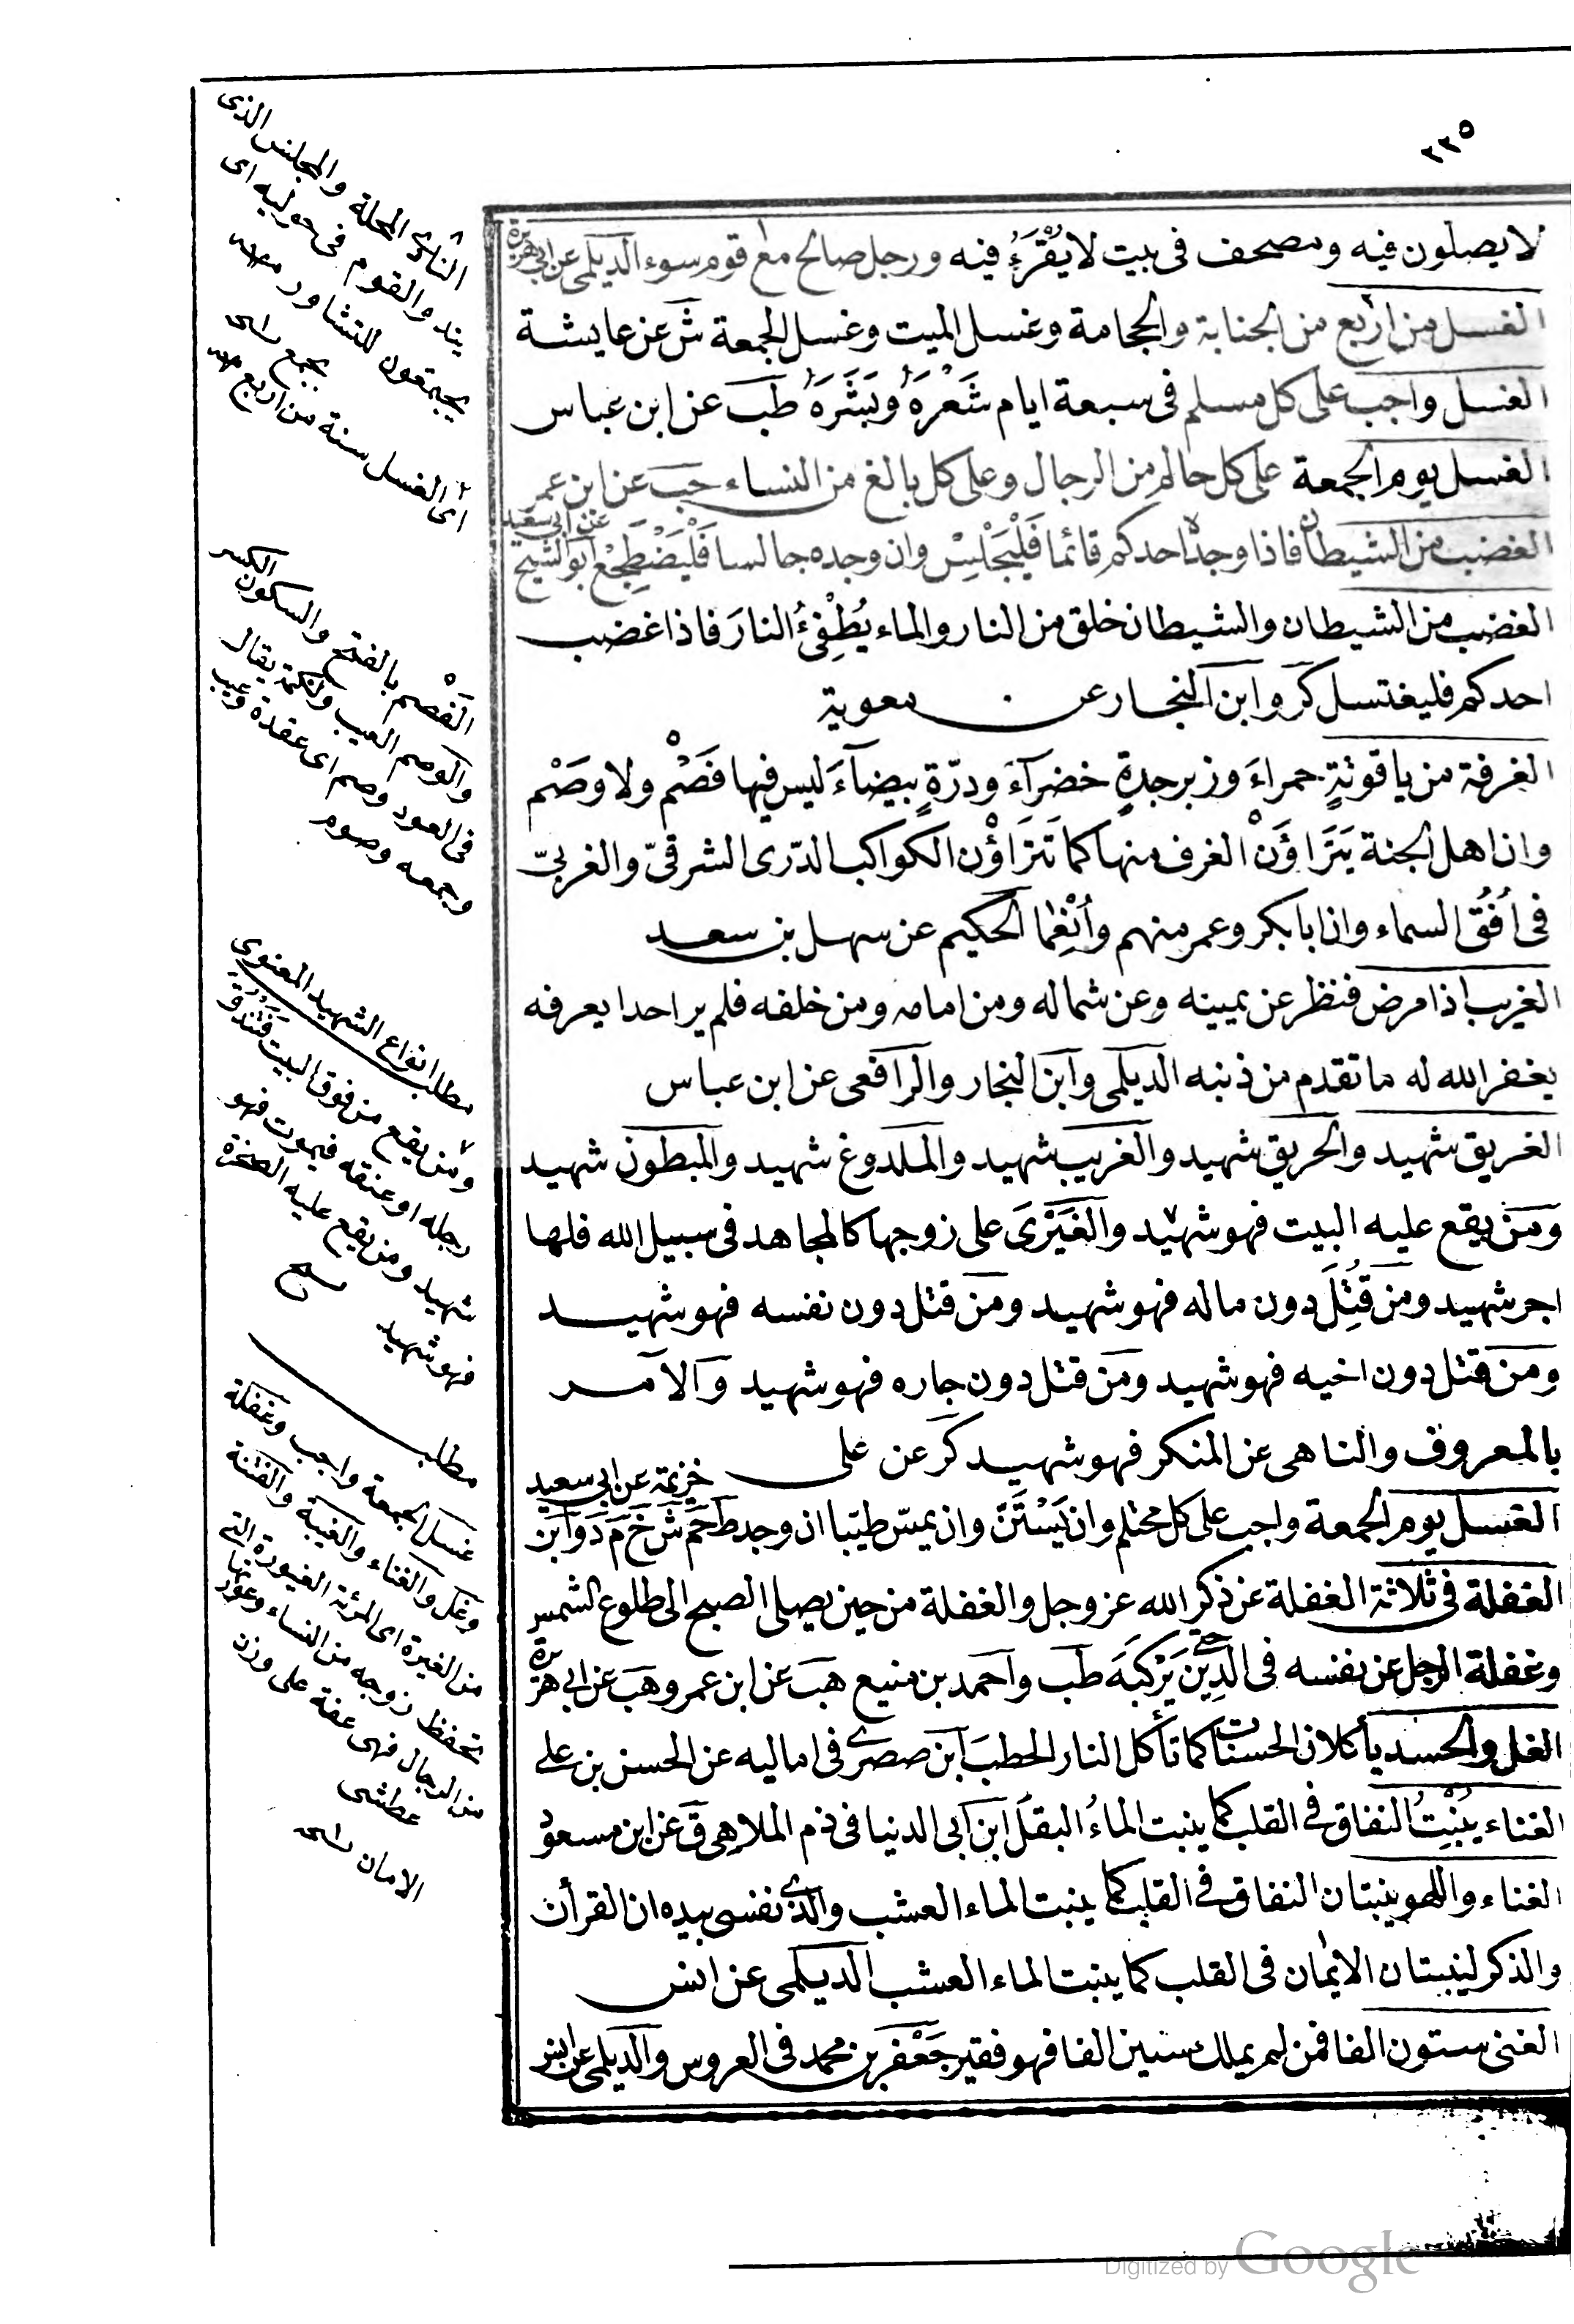 ٢٢٥
لا يصلون فيه ومصحف فى بيت لا يُقْرَءُ فيه ورجل صالح مع قوم سوء الديلمى عن ابى هريرة
الغسل من اربع من الجنابة والحجامة وغسل الميت وغسل الجمعة ش عن عايشة
الغسل واجب على كل مسلم فى سبعة ايام شَعْرَهُ وبَشَرَهُ طب عن ابن عباس
الغسل يوم الجمعة على كل حالم من الرجال وعلى كل بالغ من النساء حب عن ابن عمر
الغضب من الشيطان فاذا وجده احدكم قائما فَلْيَجْلِسْ وان وجده جالسا فَلْيَضْطَجِعْ ابو الشيخ عن ابى سعيد
الغضب من الشيطان والشيطان خلق من النار والماء يُطْفِئُ النارَ فاذا غضب
احدكم فليغتسل كر وابن النجار عن معوية
الغرفة من ياقوتةٍ حمراءَ وزبرجدةٍ خضرآءَ ودرّةٍ بيضآءَ ليس فيها فَصْم ولا وَصْم
وان اهل الجنة يَتَرَاؤَنْ الغرف منها كما تَتَرَاؤْن الكواكب الدّرى الشرقىّ والغربىّ
فى اُفُقِ السماء وان ابا بكر وعمر منهم وأَنْعِمَا الحكيم عن سهل بن سعد
الغريب اذا مرض فنظر عن يمينه وعن شماله ومن امامه ومن خلفه فلم ير احدا يعرفه
يغفر الله له ما تقدم من ذنبه الديلمى وابن النجار والرافعى عن ابن عباس
الغريق شهيد والحريق شهيد والغريب شهيد والملدوغ شهيد والمبطون شهيد
ومن يقع عليه البيت فهو شهيد والغَيْرَى على زوجها كالمجاهد فى سبيل الله فلها
اجر شهيد ومن قُتِلَ دون ماله فهو شهيد ومن قتل دون نفسه فهو شهيد
ومن قتل دون اخيه فهو شهيد ومن قتل دون جاره فهو شهيد والآمر
بالمعروف والناهى عن المنكر فهو شهيد كر عن على
الغسل يوم الجمعة واجب على كل محتلم وان يَسْتَنّ وان يمسّ طيبا ان وجد ط حم ش خ م د وابن خزيمة عن ابى سعيد
الغفلة فى ثلاثة الغفلة عن ذكر الله عز وجل والغفلة من حين يصلى الصبح الى طلوع الشمس
وغفلة الرجل عن نفسه فى الدين حتى يَرْكَبَه طب واحمد بن منيع هب عن ابن عمرو هب عن ابى هريرة
الغل والحسد يأكلان الحسنات كما تأكل النار الحطب ابن صصرى فى اماليه عن الحسن بن على
الغناء يُنْبِتُ النفاق فى القلب كما ينبت الماءُ البقلَ ابن ابى الدنيا فى ذم الملاهى ق عن ابن مسعود
الغناء واللهو ينبتان النفاق فى القلب كما ينبت الماء العشب والذى نفسى بيده ان القرأن
والذكر لينبتان الايمان فى القلب كما ينبت الماء العشب الديلمى عن انس
الغنى ستون الفا فمن لم يملك ستين الفا فهو فقير جعفر بن محمد فى العروس والديلمى عن انس
المحلة والمجلس الذى
يند والقوم فى حوليه اى
يجتمعون للتشاور
اى الغسل سنة من اربع
الفصم بالفتح والسكون الكسر
والوصم العيب يقال
فى العود وصم اى عقدة وعيب
وجمعه وصوم
مطلب انواع الشهيد المعنوى
ومن يقع من فوق البيت فتندق
رجله او عنقه فيموت فهو
شهيد ومن يقع عليه الصخرة
فهو شهيد
مطلب
غسل الجمعة واجب وغفلة
وغل والغناء والغيبة والفتنة
من الغيرة اى المرئة الغيورة التى
تحفظ زوجه من النساء
من الرجال فهى عفة على وزن
عطشى
Digitized by Google